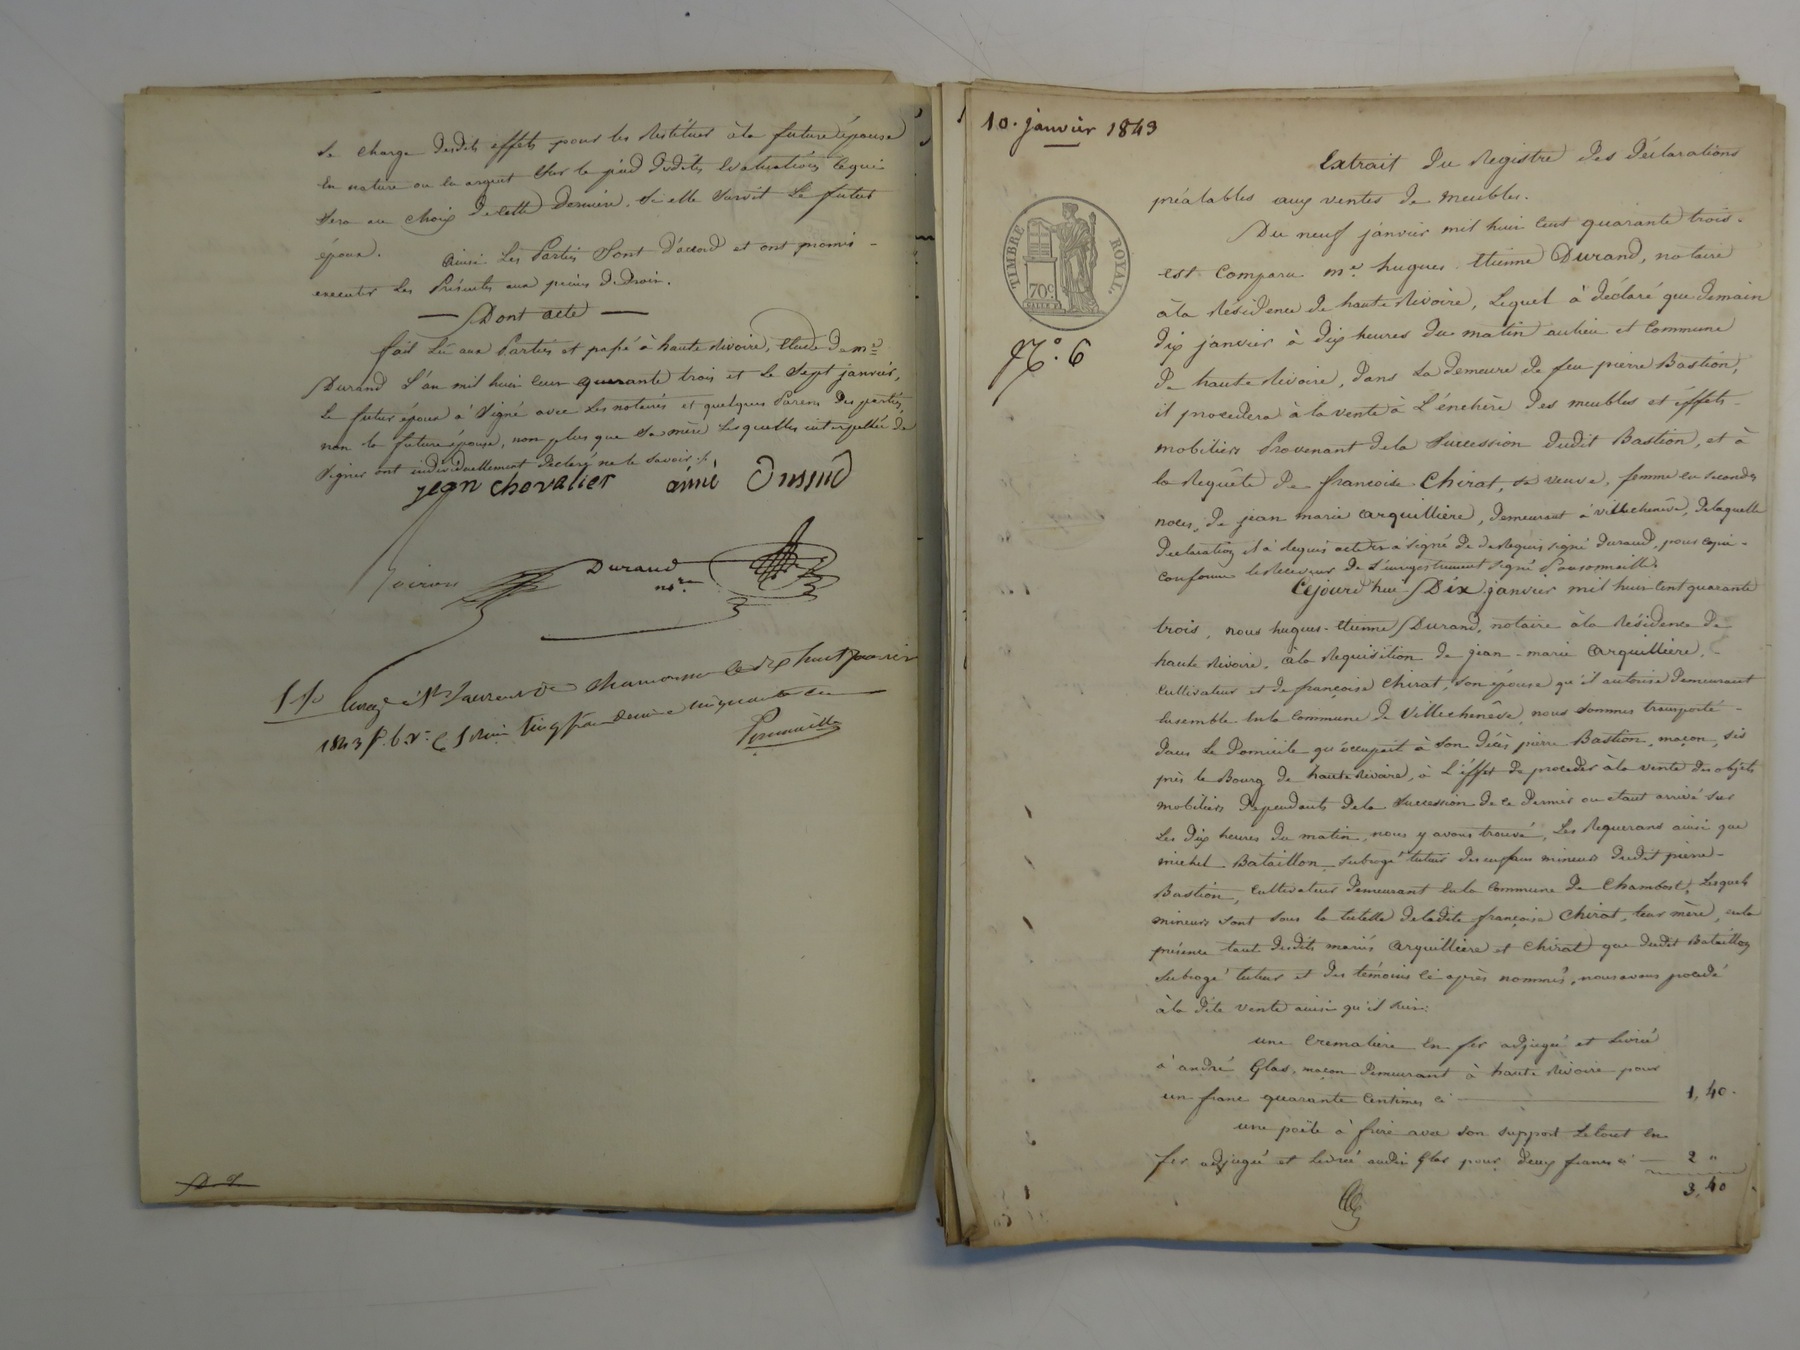 se charge desdits effets pour les restituer à la future épouse
en nature ou en argent sur le pied desdites évaluations ce qui
sera au choix de cette dernière, si elle survit le futur
époux.
Ainsi les Parties sont d'accord et ont promis
executer les Présentes aux peines de Droit.
Dont acte
fait lu aux Parties et passé à haute Rivoire, Etude de me
Durand L'an mil huit cent quarante trois et le sept janvier,
le futur époux a signé avec les notaires et quelques Parens des parties,
non la future épouse, non plus que sa mère lesquelles interpellées de
signer ont individuellement declaré ne le savoir ./.
jean chovalier aimé
Voiron Durand
nore
à St Laurent de Chamousset le dix huit janvier
1843 f. 6. vo
10. janvier 1843
TIMBRE ROYAL.
70c
No. 6
Extrait du Registre des déclarations
préalables aux ventes de meubles.
Du neuf janvier mil huit cent quarante trois
est comparu me hugues Etienne Durand, notaire
à la Résidence de haute Rivoire, Lequel à déclaré que demain
dix janvier à dix heures du matin au lieu et commune
de haute Rivoire, dans la demeure de feu pierre Bastion,
il procedera à la vente à L'enchère des meubles et éffets
mobiliers Provenant de la succession dudit Bastion, et à
la Requête de françoise Chirat, sa veuve, femme en secondes
noces, de jean marie arquilliere, demeurant à villechenève, de laquelle
declaration il à requis acte et à signé signé Durand, pour copie
conforme le Receveur de l'enregistrement signé
Cejourd'hui Dix janvier mil huit cent quarante
trois, nous hugues-Etienne Durand, notaire à la Résidence de
haute Rivoire, à la Requisition de jean-marie arquilliere,
cultivateur et de françoise Chirat, son épouse qu'il autorise Demeurant
ensemble en la commune de Villechenève, nous sommes transporté
dans le Domicile qu'occupait à son décès pierre Bastion, maçon, sis
près le Bourg de haute Rivoire, à L'éffet de proceder à la vente des objets
mobiliers dependants de la succession de ce dernier ou etant arrivé sur
les dix heures du matin, nous y avons trouvé, Les Requerans ainsi que
michel Bataillon subrogé tuteur des enfans mineurs dudit pierre
Bastion, cultivateur demeurant en la commune de Chambost, lesquels
mineurs sont sous la tutelle de ladite françoise Chirat, leur mère, en la
présence tant desdits mariés arquilliere et Chirat que dudit Bataillon
subrogé tuteur et des témoins ci après nommés, nous avons procédé
à la dite vente ainsi qu'il suit:
une cremaliere en fer adjugée et Livrée
à andré Glas, maçon demeurant à haute Rivoire pour
un franc quarante centimes ci 1, 40.
une poële à frire avec son support le tout en
fer adjugée et livrée audit Glas pour deux francs ci 2 "
3, 40